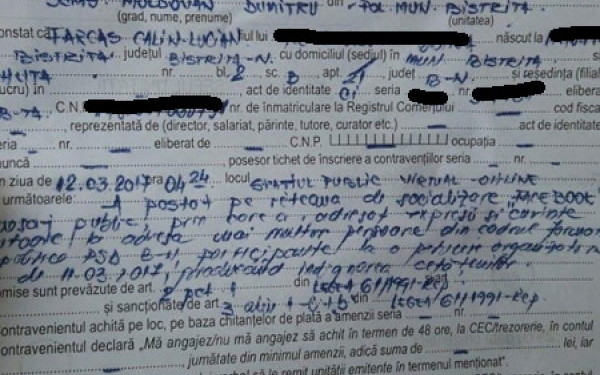 MOLDOVAN DUMITRU din POL. MUN. BISTRITA
(grad, nume, prenume) (unitatea)
constat că TARCAS CALIN-LUCIAN fiul lui născut la
BISTRITA județul BISTRITA-N. cu domiciliul (sediul) în MUN BISTRITA
nr. bl. 2 sc. B apt. 21 județ B-N și reședința (filiala
lucru) în act de identitate CI seria nr. elibera
B-TA C.N. nr. de înmatriculare la Registrul Comerțului cod fisca
reprezentată de (director, salariat, părinte, tutore, curator etc.) act de identitate
seria nr. eliberat de C.N.P. ocupația
muncă posesor tichet de înscriere a contravențiilor seria nr.
în ziua de 12.03.2017 ora 04 24 locul SPATIUL PUBLIC VIRTUAL-ONLINE
următoarele: A postat pe rețeaua de socializare "FACEBOOK"
mesaj public, prin care a adresat expresii și cuvinte
la adresa mai multor persoane din cadrul
politic PSD B-N, participante la o organizată în
de 11.03.2017, provocând indignarea cetățenilor.
comise sunt prevăzute de art. 2 pct 1 din LEGEA 61/1991-REP
și sancționate de art. 3 alin 1 lit b din LEGEA 61/1991-REP.
Contravenientul achită pe loc, pe baza chitanțelor de plată a amenzii seria nr.
contravenientul declară „Mă angajez/nu mă angajez să achit în termen de 48 ore, la CEC/trezorerie, în contul
jumătate din minimul amenzii, adică suma de lei, iar
verbal să le remit unității emitente în termenul menționat".